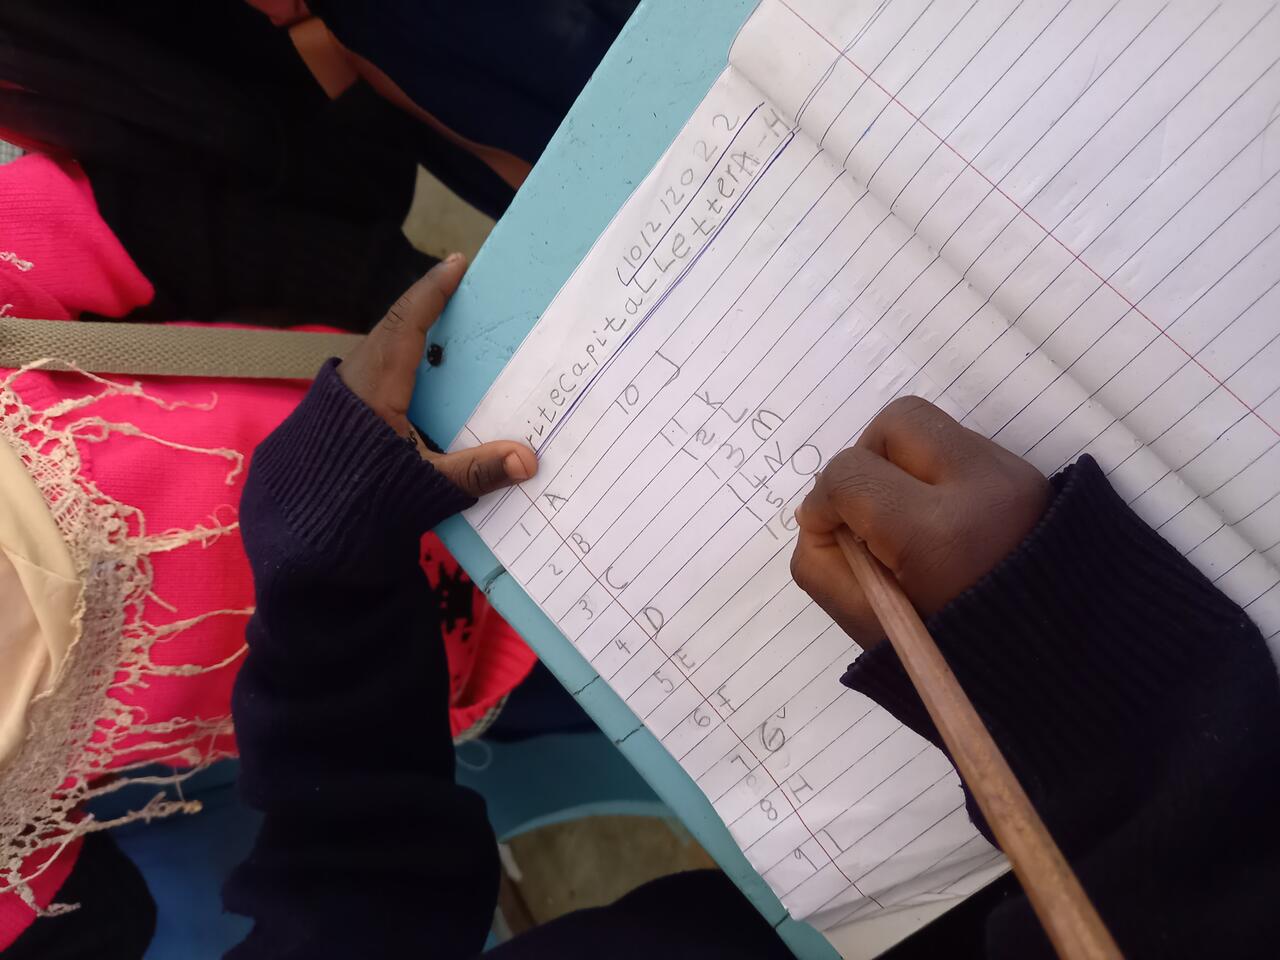 (10/2/2022
riteCapitaLLetterA-H
1 A
2 B
3 C
4 D
5 E
6 F
7 G
8 H
9 I
10 J
11 K
12 L
13 m
14 N
15 O
16